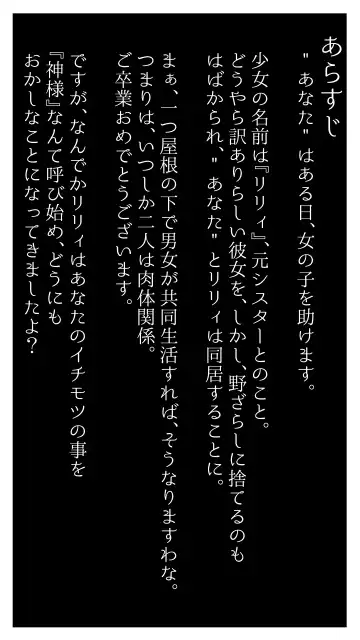 あらすじ
"あなた" はある日、女の子を助けます。
少女の名前は『リリィ』、元シスターとのこと。
どうやら訳ありらしい彼女を、しかし、野ざらしに捨てるのも
はばかられ、"あなた" とリリィは同居することに。
まぁ、一つ屋根の下で男女が共同生活すれば、そうなりますわな。
つまりは、いつしか二人は肉体関係。
ご卒業おめでとうございます。
ですが、なんでかリリィはあなたのイチモツの事を
『神様』なんて呼び始め、どうにも
おかしなことになってきましたよ？